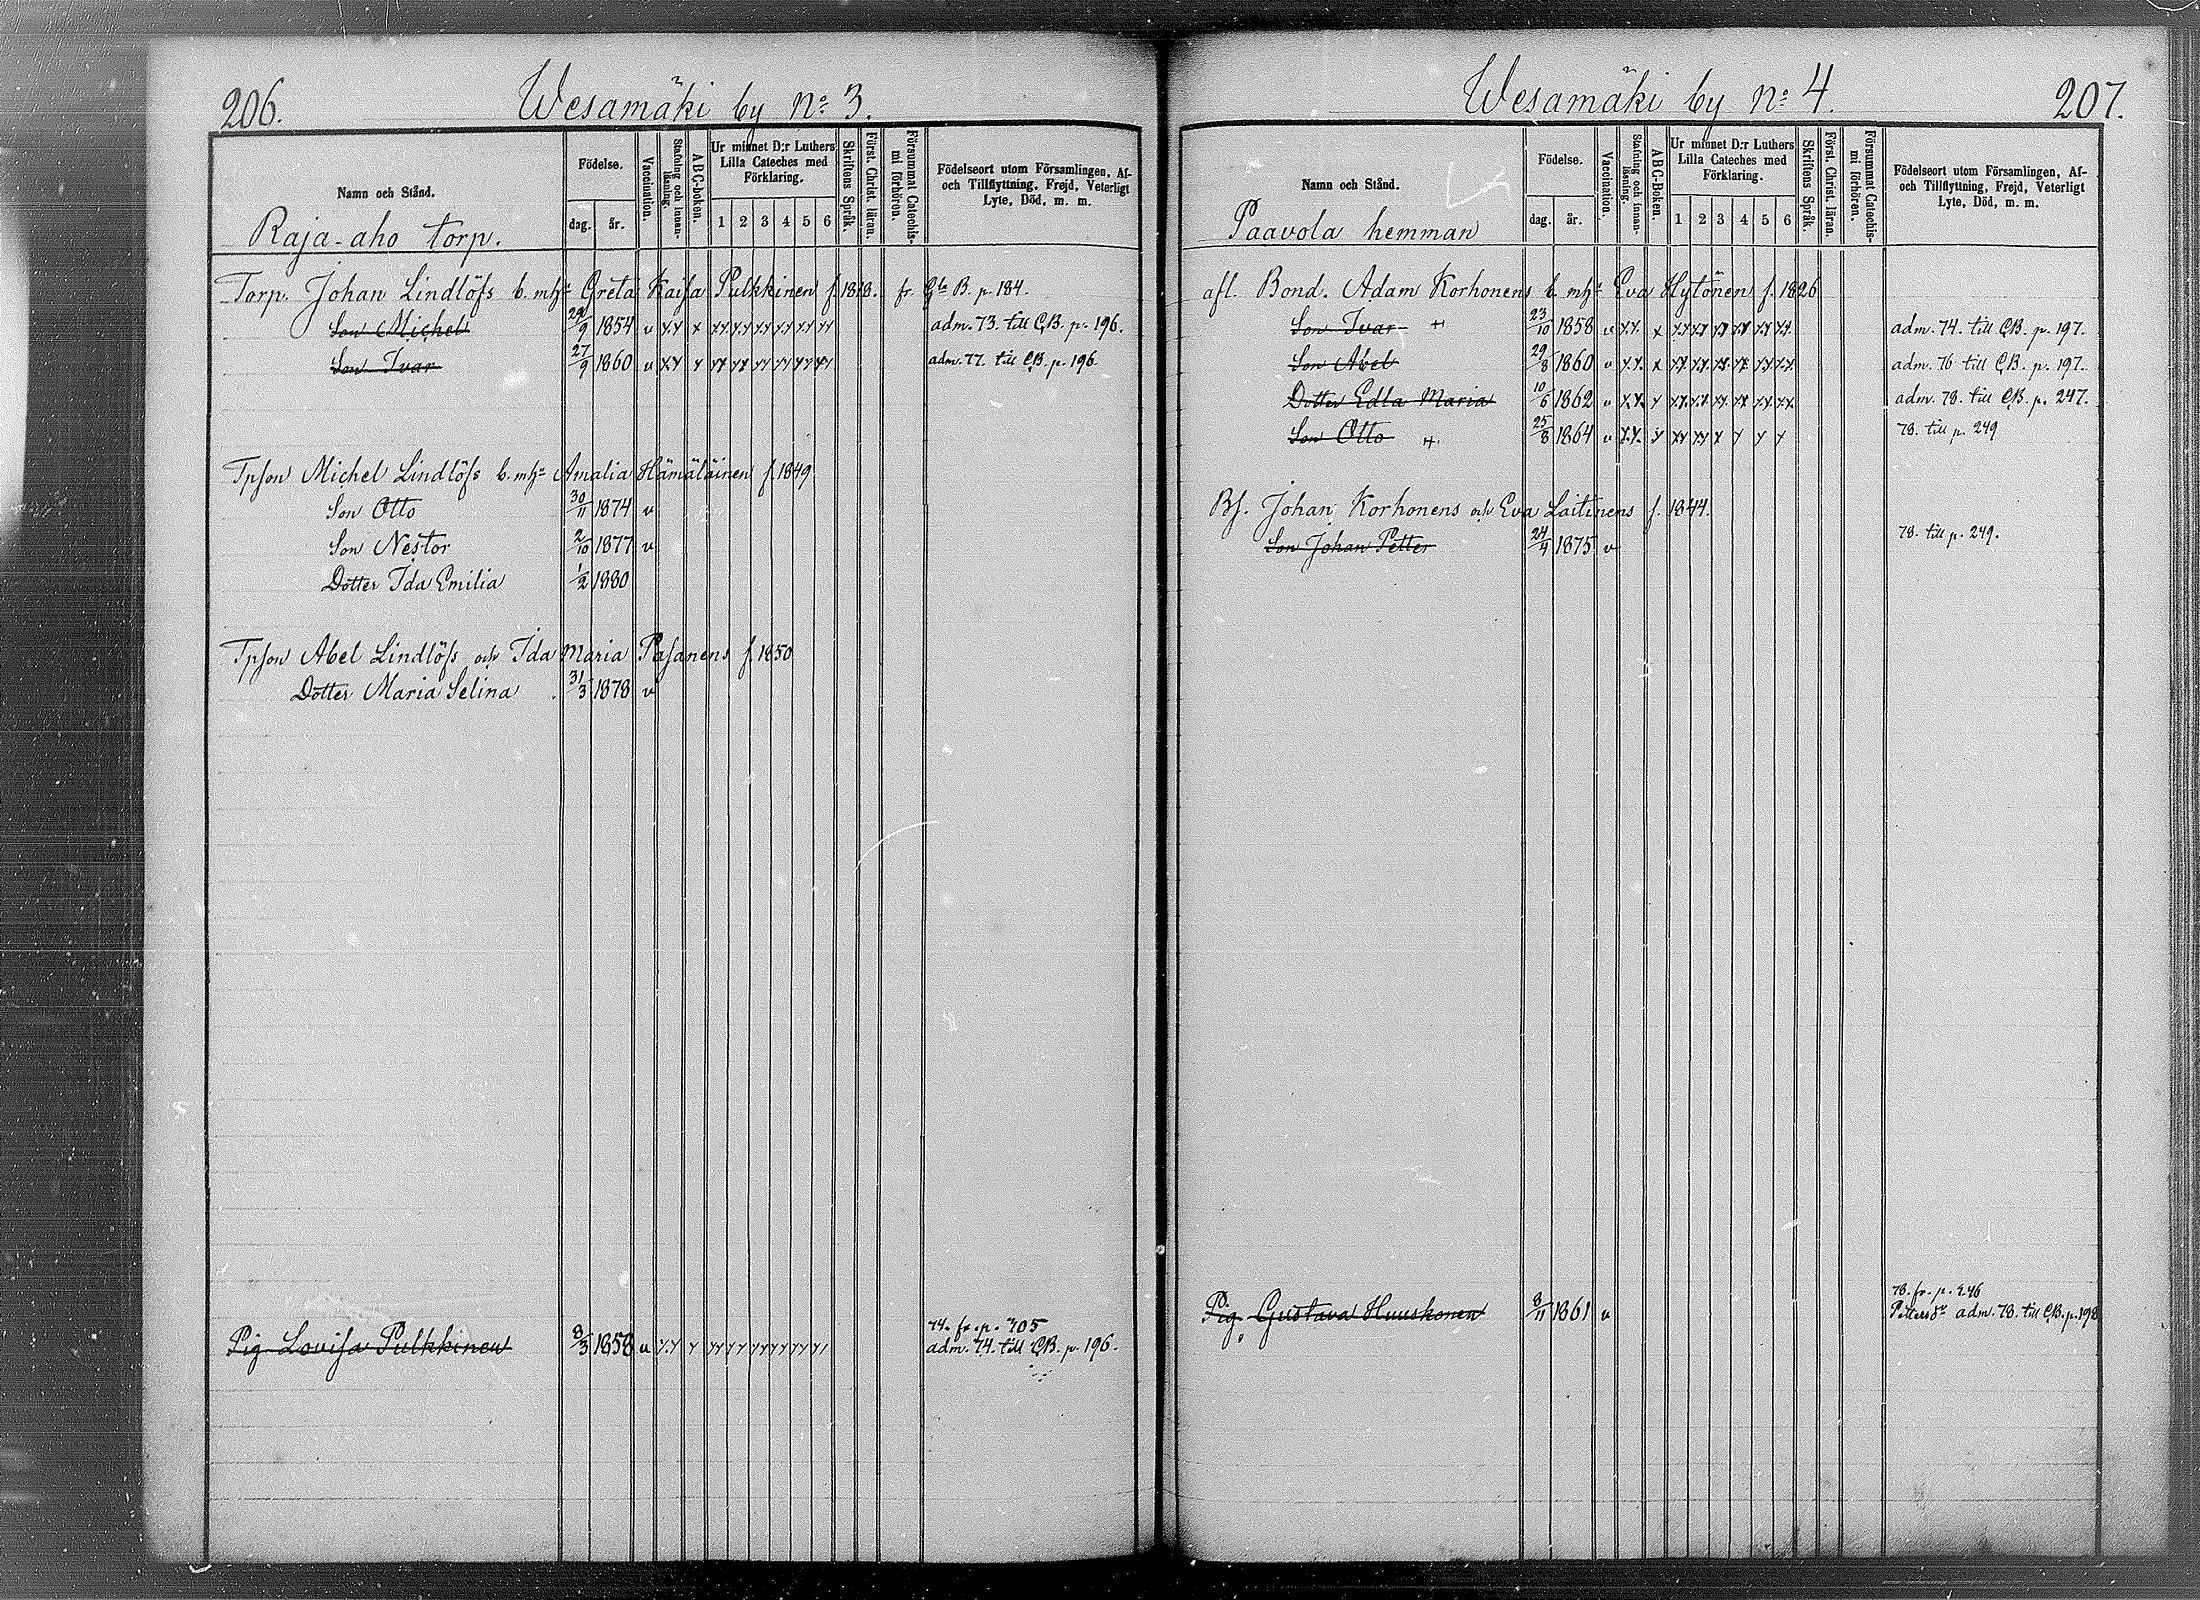 206.
Wesamäki by No 3.
Namn och Stånd.
Födelse.
dag.
år.
Vaccination.
Stafning och innanläsning.
ABC-boken.
Ur minnet D:r Luthers Lilla Cateches med Förklaring.
1 2 3 4 5 6
Skriftens Språk.
Först. Christ. läran.
Försummat Catechismi förhören.
Födelseort utom Församlingen, Af- och Tillflyttning, Frejd, Veterligt Lyte, Död, m. m.
Raja-aho torp.
Torp. Johan Lindlöfs b. mha Greta Kaisa Pulkkinen f. 1818. fr. Gla B. p. 184.
Son Michel 29/9 1854 v xx x xx xx xx xx xx xx adm. 73. till CB. p. 196.
Son Ivar 27/9 1860 v xx x xx xx xx xx xx xx adm. 77. till CB. p. 196.
Tpson Michel Lindlöfs b. mha Amalia Hämäläinen f. 1849
Son Otto 30/11 1874 v
Son Nestor 2/10 1877 v
Dotter Ida Emilia 1/2 1880
Tpson Abel Lindlöfs och Ida Maria Pasanens f. 1850
Dotter Maria Selina 31/3 1878 v
74. fr. p. 305
Pig. Lovisa Pulkkinen 8/3 1858 v xx x xx xx xx xx xx xx adm. 74. till CB. p. 196.
Wesamäki by No 4.
207.
Namn och Stånd.
Födelse.
dag.
år.
Vaccination.
Stafning och innanläsning.
ABC-Boken.
Ur minnet D:r Luthers Lilla Cateches med Förklaring.
1 2 3 4 5 6
Skriftens Språk.
Först. Christ. läran.
Försummat Catechismi förhören.
Födelseort utom Församlingen, Af- och Tillflyttning, Frejd, Veterligt Lyte, Död, m. m.
Paavola hemman
afl. Bond. Adam Korhonens b. mha Eva Hytönen f. 1826
Son Ivar + 23/10 1858 v xx x xx xx xx xx xx xx adm. 74. till CB. p. 197.
Son Abel 29/8 1860 v xx x xx xx xx xx xx xx adm. 76 till CB. p. 197.
Dotter Edla Maria 10/6 1862 v xx x xx xx xx xx xx xx adm. 78. till CB. p. 247.
Son Otto + 25/8 1864 v xx x xx xx x x x x 78. till p. 249
Bs. Johan Korhonens och Eva Laitinens f. 1844.
Son Johan Petter 24/4 1875 v 78. till p. 249.
78. fr. p. 246
Pig. Gustava Huuskonen 8/11 1861 v adm. 78. till CB. p. 198